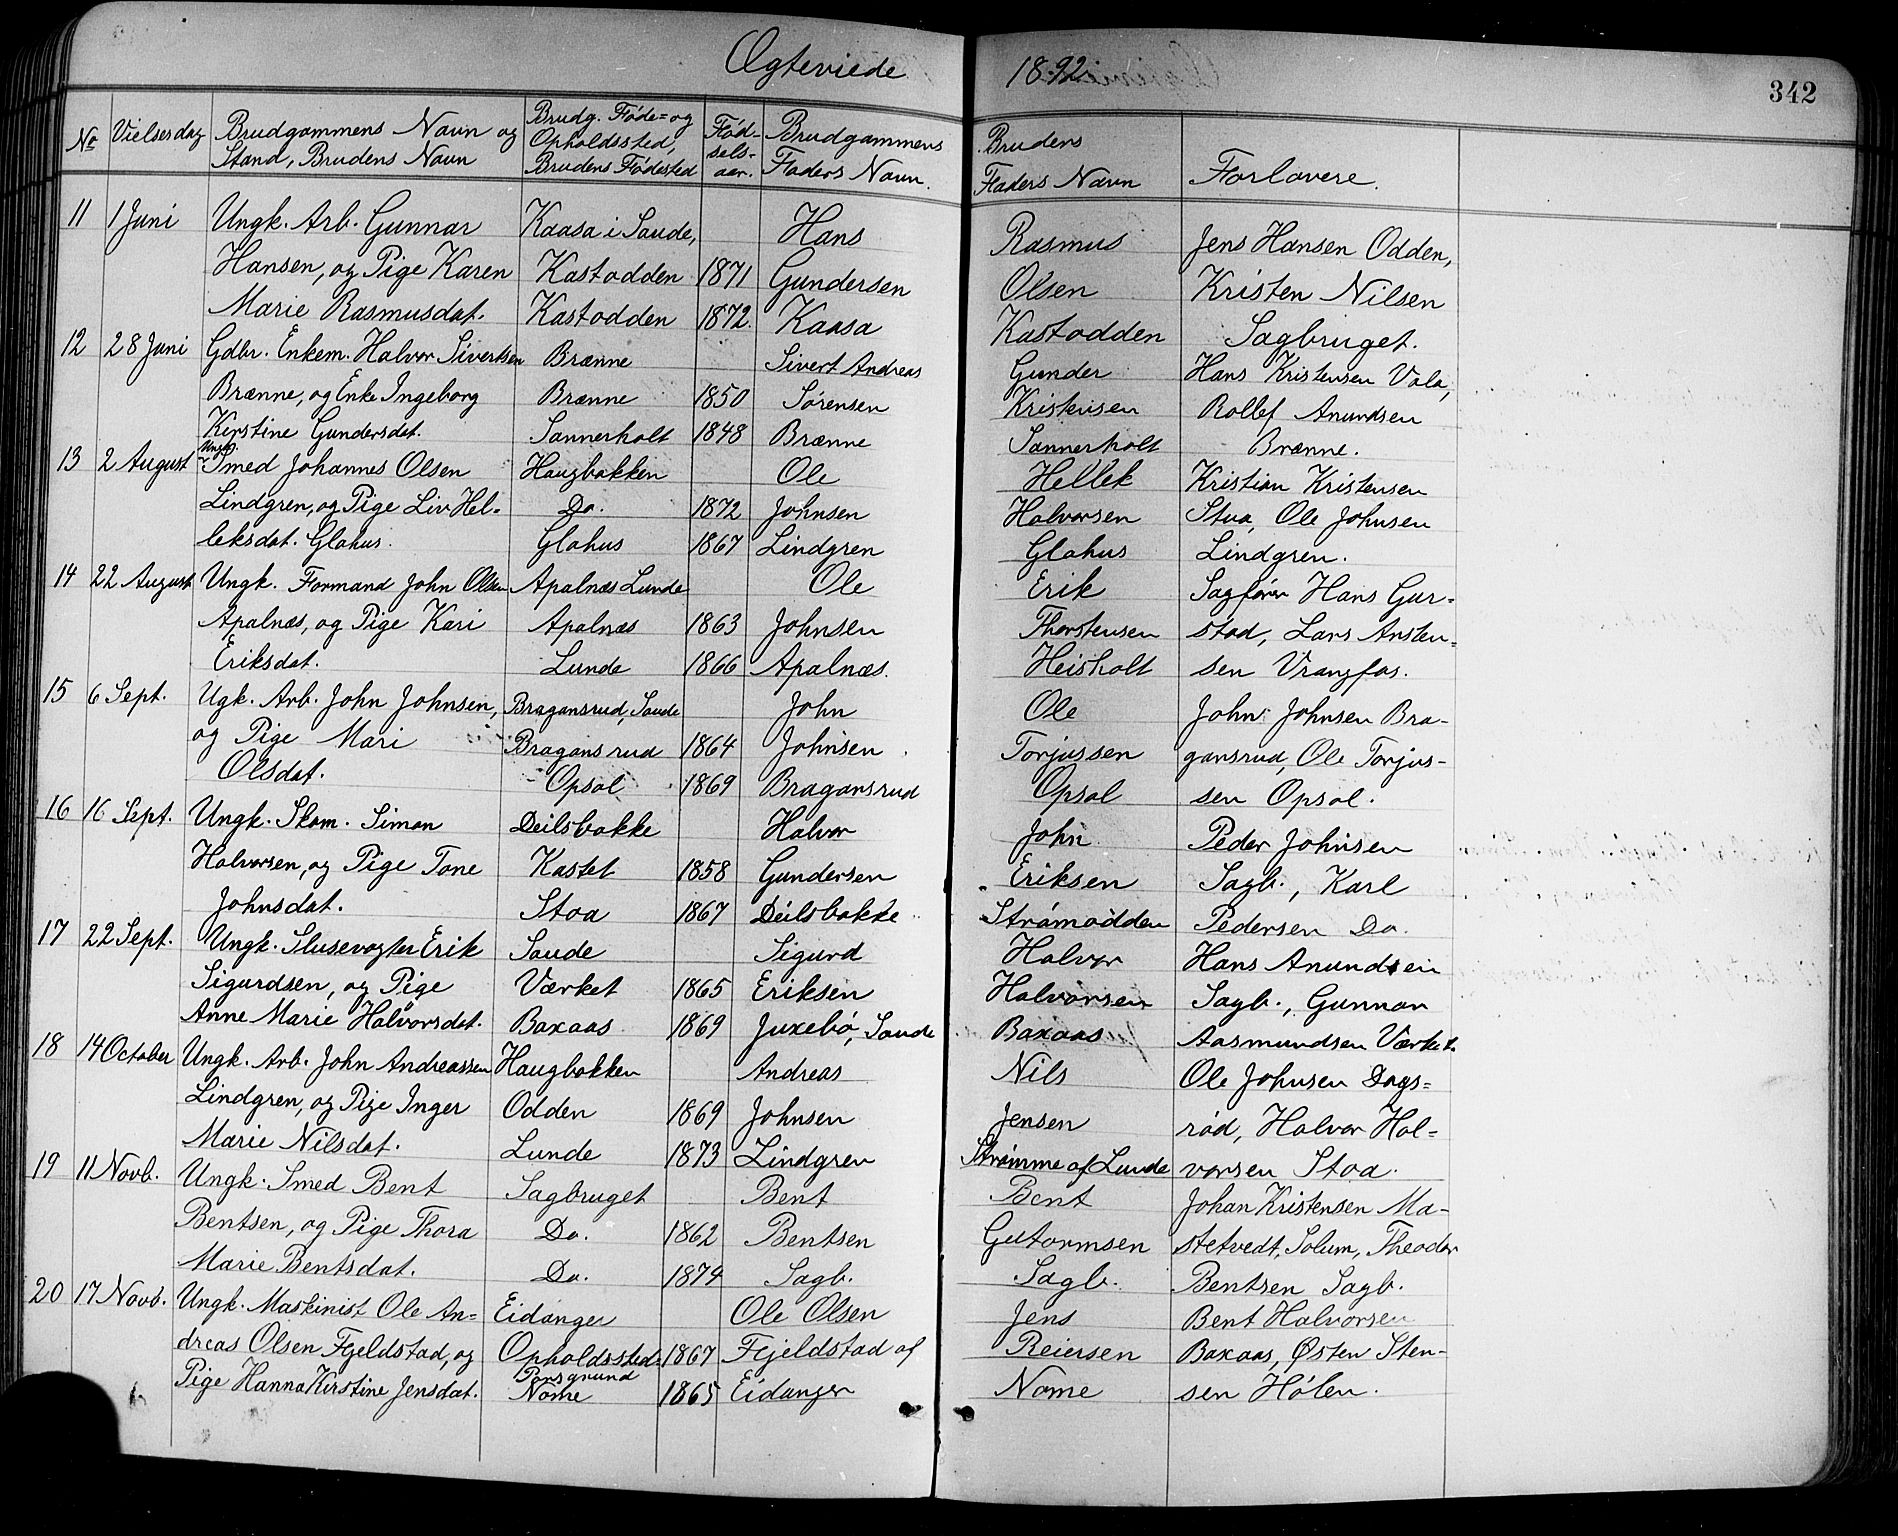 Ægteviede 1892.
342
No Vielsesdag Brudgommens Navn og Stand, Brudens Navn Brudg. Føde= og Opholdssted, Brudens Fødested Fød-sels-aar. Brudgommens Faders Navn. Brudens Faders Navn Forlovere.
11 1 Juni Ungk. Arb. Gunnar Kaasa i Saude, Hans Rasmus Jens Hansen Odden,
Hansen, og Pige Karen Kastodden 1871 Gundersen Olsen Kristen Nilsen
Marie Rasmusdat. Kastodden 1872 Kaasa Kastodden Sagbruget.
12 28 Juni Gdbr. Enkem. Halvor Sivertsen Brænne Sivert Andreas Gunder Hans Kristensen Vala,
Brænne, og Enke Ingeborg Brænne 1850 Sørensen Kristensen Rollef Anundsen
Kirstine Gundersdat. Sannerholt 1848 Brænne Sannerholt Brænne.
13 2 August Ungk. Smed Johannes Olsen Haugbakken Ole Hellek Kristian Kristensen
Lindgren, og Pige Liv Hel= Do. 1872 Johnsen Halvorsen Stoa, Ole Johnsen
leksdat. Glahus. Glahus 1867 Lindgren Glahus Lindgren.
14 22 August Ungk. Formand John Olsen Apalnæs Lunde Ole Erik Sagfører Hans Gur=
Apalnæs, og Pige Kari Apalnæs 1863 Johnsen Thorstensen stad, Lars Ansten=
Eriksdat. Lunde 1866 Apalnæs. Heisholt sen Vrangfos.
15 6 Sept. Ugk. Arb. John Johnsen, Bragansrud, Saude John Ole John Johnsen Bra-
og Pige Mari Bragansrud 1864 Johnsen Torjussen gansrud, Ole Torjus-
Olsdat. Opsal 1869 Bragansrud Opsal sen Opsal.
16 16 Sept. Ungk. Skom. Simon Deilsbakke Halvor John Peder Johnsen
Halvorsen, og Pige Tone Kastet 1858 Gundersen Eriksen Sagb., Karl
Johnsdat. Stoa 1867 Deilsbakke Strømodden Pedersen Do.
17 22 Sept. Ungk. Slusevogter Erik Saude Sigurd Halvor Hans Anundsen
Sigurdsen, og Pige Værket 1865 Eriksen Halvorsen Sagb., Gunnar
Anne Marie Halvorsdat. Baxaas 1869 Juxebø, Saude Baxaas Aasmundsen Værket.
18 14 October Ungk. Arb. John Andreassen Haugbakken Andreas Nils Ole Johnsen Dags=
Lindgren, og Pige Inger Odden 1869 Johnsen Jensen rød, Halvor Hal=
Marie Nilsdat. Lunde 1873 Lindgren Strømme af Lunde vorsen Stoa.
19 11 Novb. Ungk. Smed Bent Sagbruget Bent Bent Johan Kristensen Ma-
Bentsen, og Pige Thora Do. 1862 Bentsen Gutormsen stetvedt, Solum, Theodor
Marie Bentsdat. Do. 1874 Sagb. Sagb. Bentsen Sagb.
20 17 Novb. Ungk. Maskinist Ole An= Eidanger Ole Olsen Jens Bent Halvorsen
dreas Olsen Fjeldstad, og Opholdssted: 1867 Fjeldstad af Reiersen Baxaas, Østen Sten-
Pige Hanna Kirstine Jensdat. Porsgrund Nome 1865 Eidanger Nome sen Hølen.